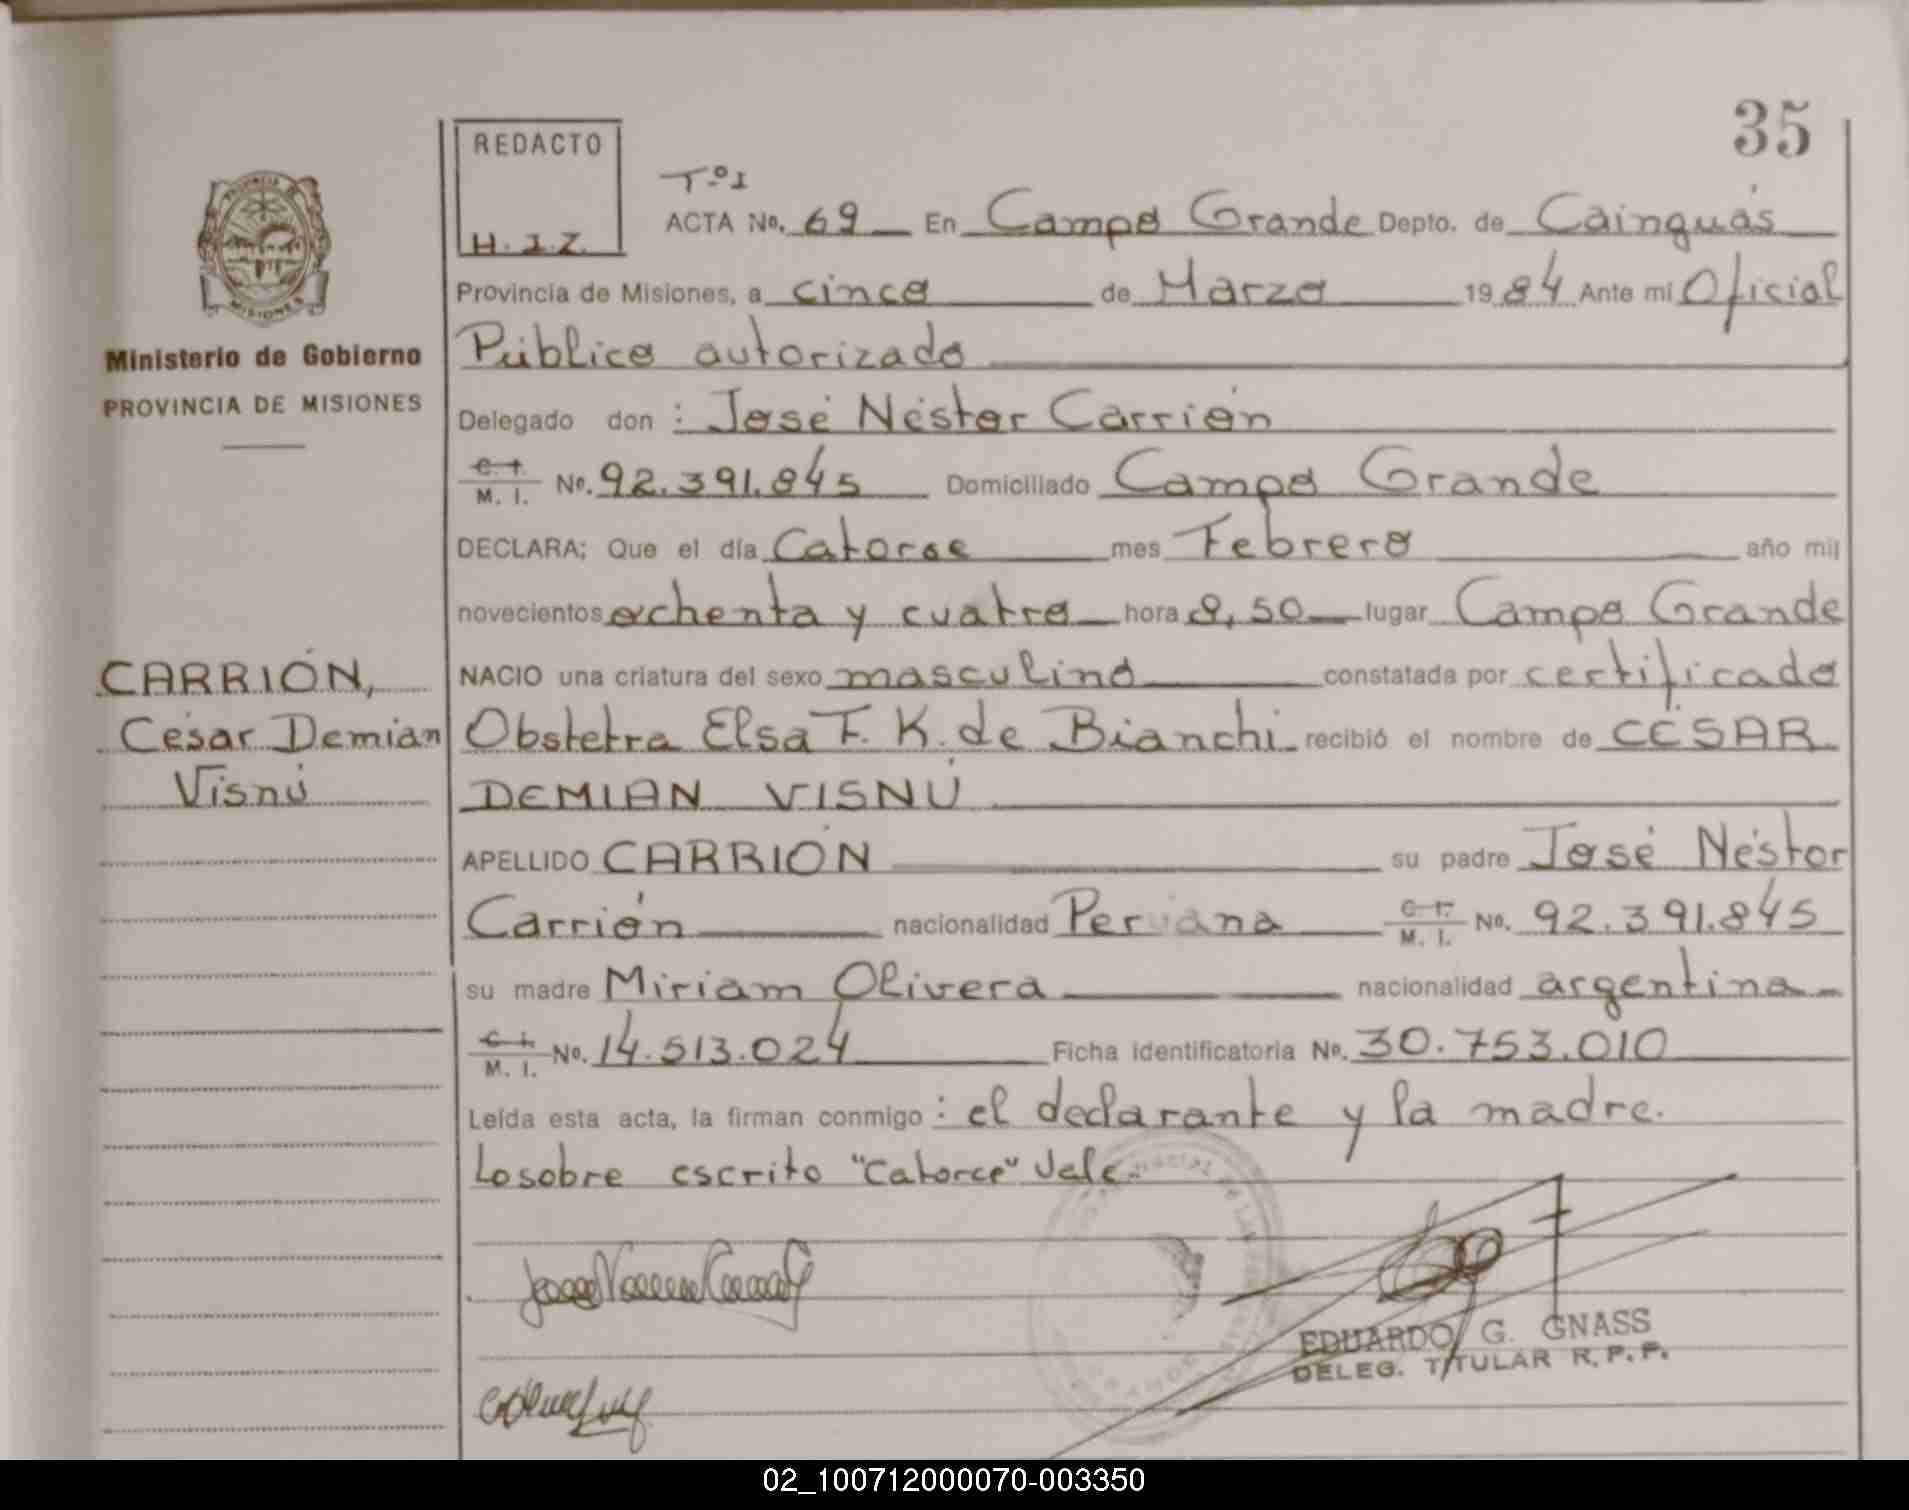 35
REDACTO
H. I. Z.
Tº 1
ACTA No. 69 En Campo Grande Depto. de Cainguás
Provincia de Misiones, a cinco de Marzo 1984 Ante mi Oficial
Público autorizado
Delegado don : José Néstor Carrión
C. I. / M. I. No. 92.391.845 Domiciliado Campo Grande
DECLARA; Que el día Catorce mes Febrero año mil
novecientos ochenta y cuatro hora 8,50 lugar Campo Grande
NACIO una criatura del sexo masculino constatada por certificado
Obstetra Elsa F. K. de Bianchi recibió el nombre de CÉSAR
DEMIAN VISNÚ
APELLIDO CARRIÓN su padre José Néstor
Carrión nacionalidad Peruana C. I. / M. I. No. 92.391.845
su madre Miriam Olivera nacionalidad argentina
C. I. / M. I. No. 14.513.024 Ficha identificatoria No. 30.753.010
Leída esta acta, la firman conmigo : el declarante y la madre.
Lo sobre escrito "Catorce" Vale.
EDUARDO G. GNASS
DELEG. TITULAR R. P. P.
MISIONES
Ministerio de Gobierno
PROVINCIA DE MISIONES
CARRIÓN,
César Demian
Visnú
02_100712000070-003350